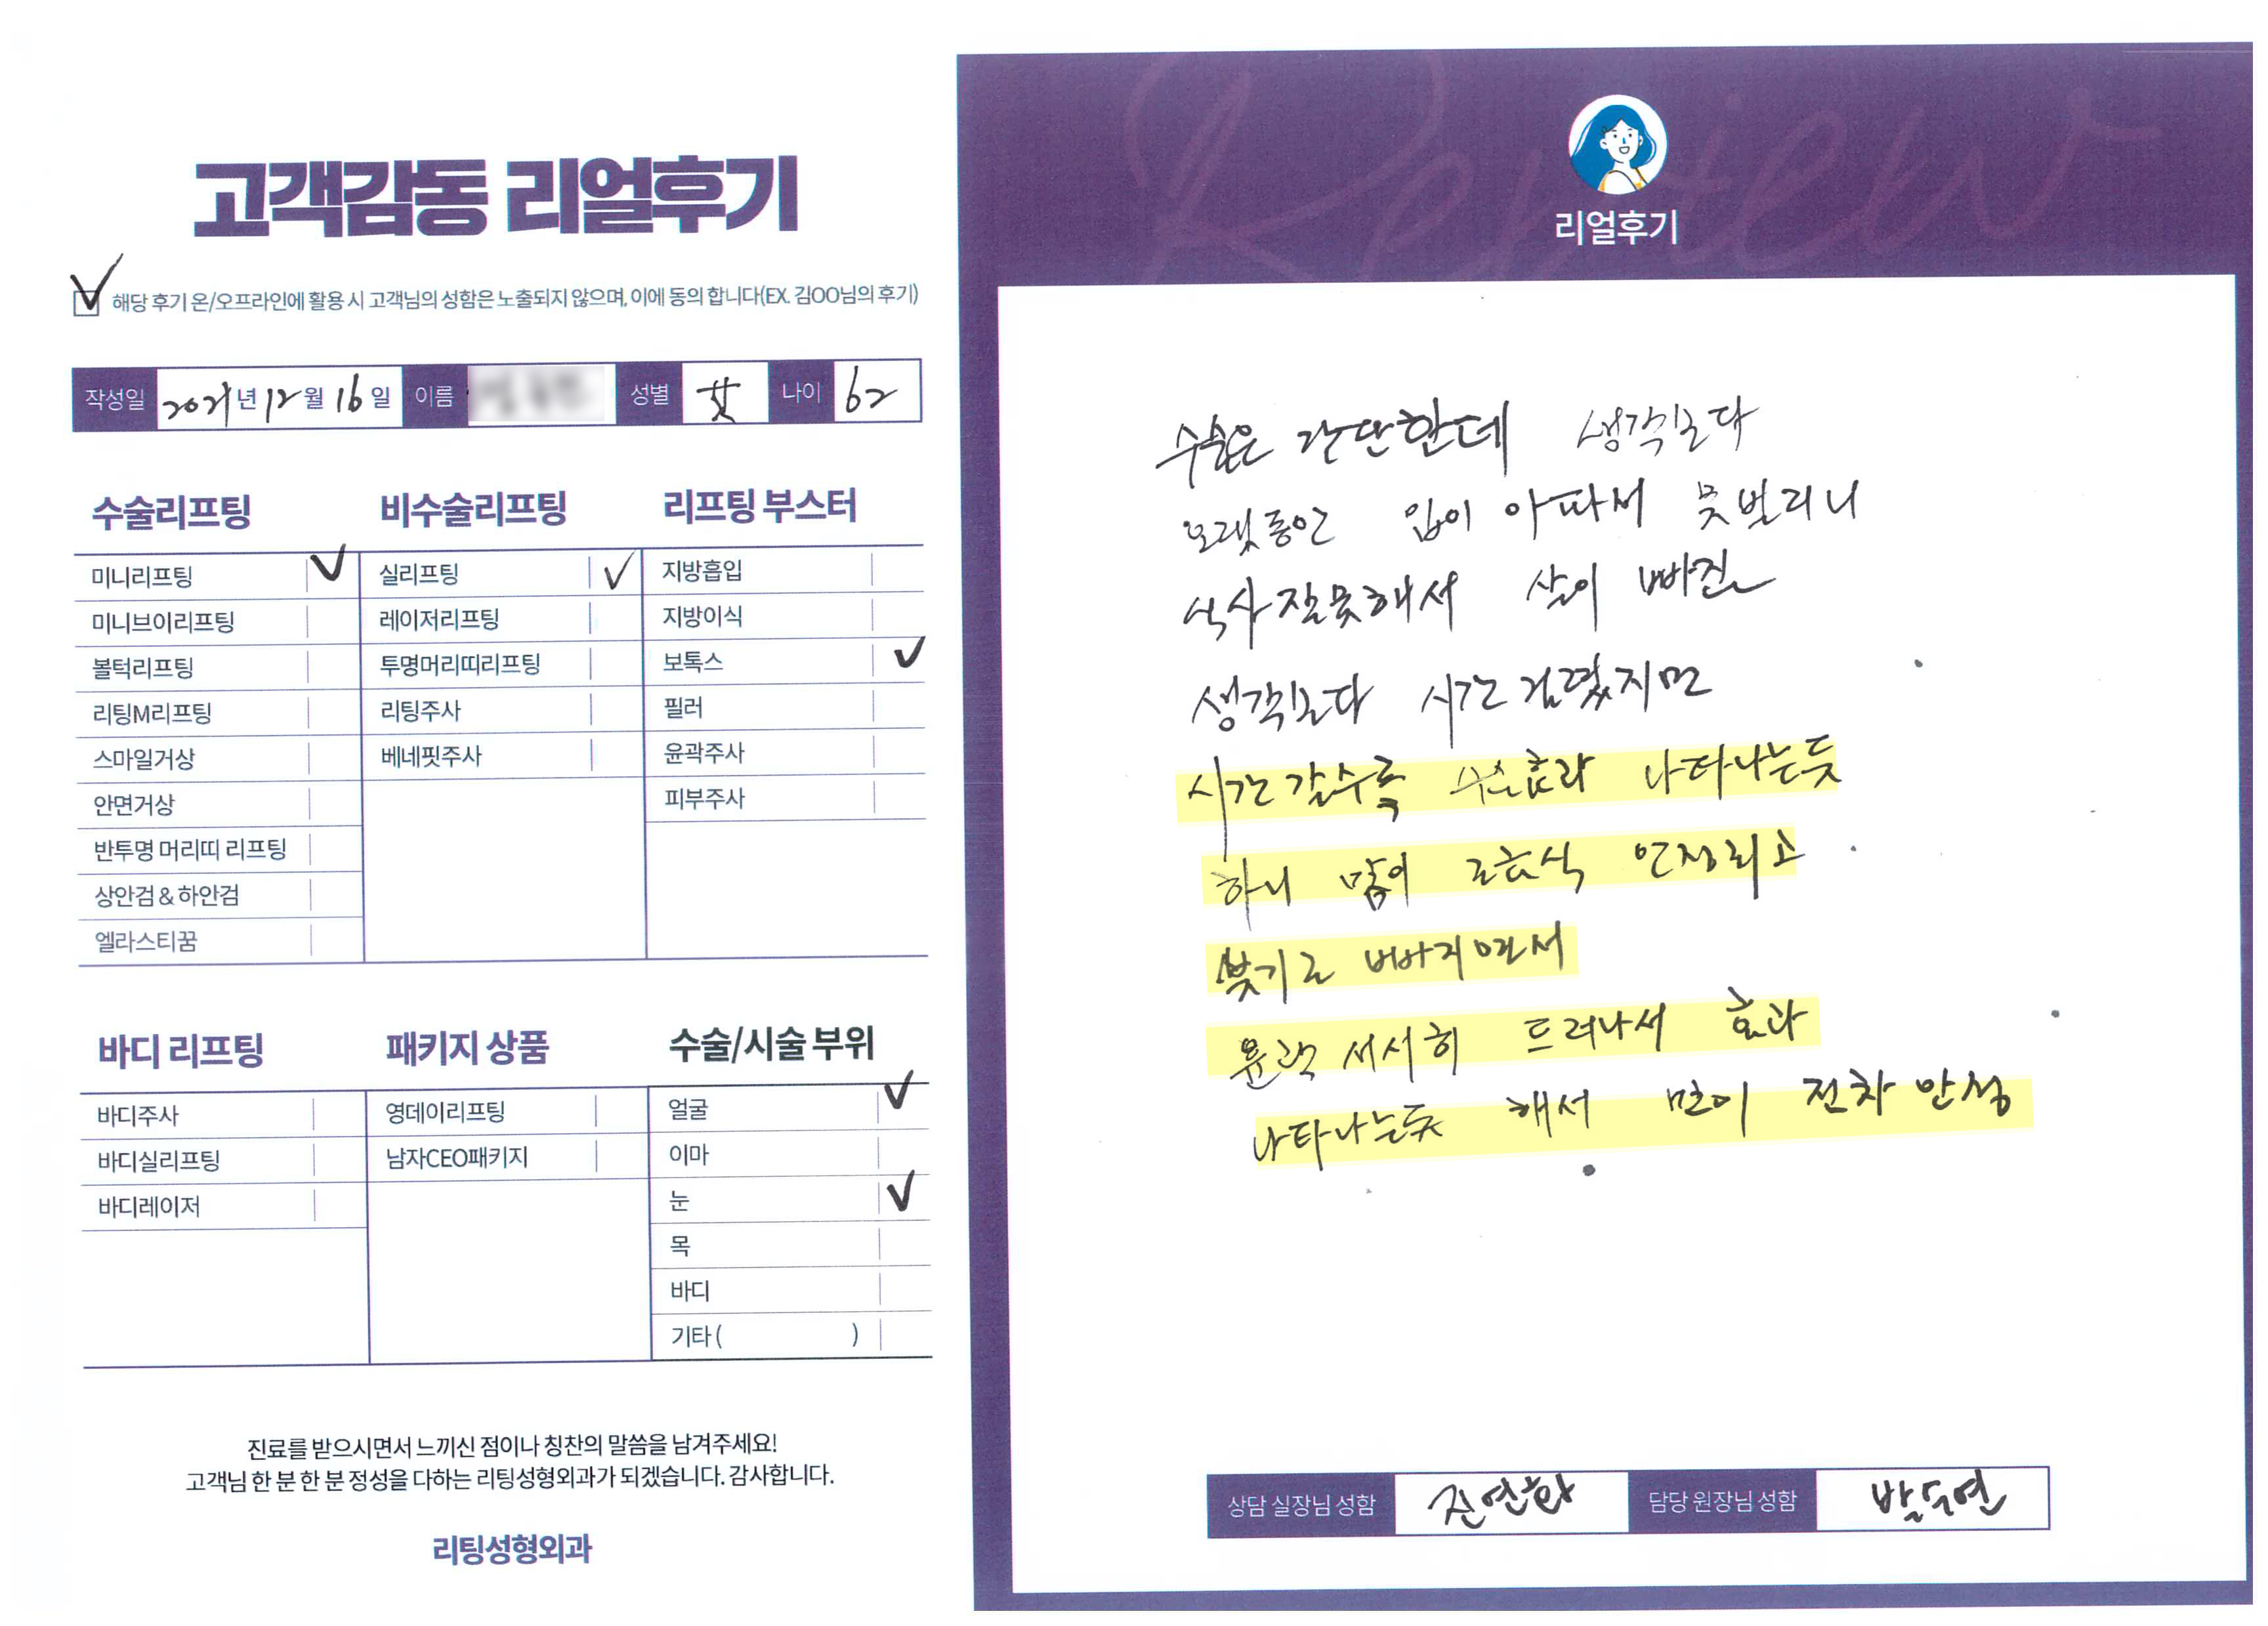 고객감동 리얼후기
해당 후기 온/오프라인에 활용 시 고객님의 성함은 노출되지 않으며, 이에 동의 합니다(EX. 김OO님의 후기)
작성일 2021년 12월 16일 이름 성별 女 나이 62
수술리프팅
미니리프팅
미니브이리프팅
볼턱리프팅
리팅M리프팅
스마일거상
안면거상
반투명 머리띠 리프팅
상안검 & 하안검
엘라스티꿈
비수술리프팅
실리프팅
레이저리프팅
투명머리띠리프팅
리팅주사
베네핏주사
리프팅 부스터
지방흡입
지방이식
보톡스
필러
윤곽주사
피부주사
바디 리프팅
바디주사
바디실리프팅
바디레이저
패키지 상품
영데이리프팅
남자CEO패키지
수술/시술 부위
얼굴
이마
눈
목
바디
기타 ( )
진료를 받으시면서 느끼신 점이나 칭찬의 말씀을 남겨주세요!
고객님 한 분 한 분 정성을 다하는 리팅성형외과가 되겠습니다. 감사합니다.
리팅성형외과
Review
리얼후기
수술은 간단한데 생각보다
오랫동안 입이 아파서 못벌리니
식사 잘못해서 살이 빠진
생각보다 시간 걸렸지만
시간 갈수록 수술효과 나타나는듯
하니 맘이 조금씩 안정되고
붓기도 빠지면서
윤곽 서서히 드러나서 효과
나타나는듯 해서 맘이 점차 안정
상담 실장님 성함 진연화 담당 원장님 성함